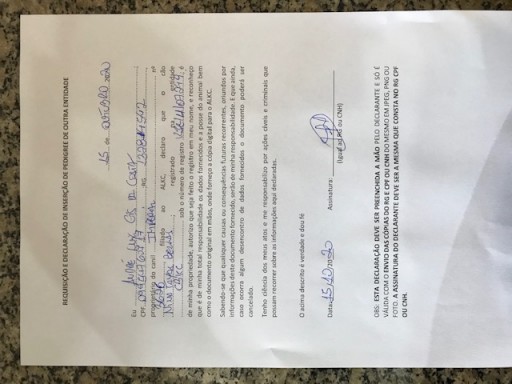 REQUISIÇÃO E DECLARAÇÃO DE INSERÇÃO DE PEDIGREE DE OUTRA ENTIDADE
15 de OUTUBRO 2020
Eu
CPF RG
proprietário do canil nº
filiado ao ALKC, declaro que o cão
registrado na entidade
CBKC sob o número de registro
de minha propriedade, autorizo que seja feito o registro em meu nome, e reconheço
que é de minha total responsabilidade os dados fornecidos e a posse do animal bem
como o documento original em mãos, onde forneço a cópia digital para o ALKC.
Sabendo-se que quaisquer causas ou consequências futuras recorrentes, oriundos por
informações deste documento fornecido, serão de minha responsabilidade. E que ainda,
caso ocorra algum desencontro de dados fornecidos o documento poderá ser
cancelado.
Tenho ciência dos meus atos e me responsabilizo por ações cíveis e criminais que
possam recorrer sobre as informações aqui declaradas.
O acima descrito é verdade e dou fé
Data: 15/10/2020 Assinatura:
(Igual ao RG ou CNH)
OBS: ESTA DECLARAÇÃO DEVE SER PREENCHIDA A MÃO PELO DECLARANTE E SÓ É
VÁLIDA COM O ENVIO DAS CÓPIAS DO RG E CPF OU CNH DO MESMO EM JPEG, PNG OU
FOTO. A ASSINATURA DO DECLARANTE DEVE SER A MESMA QUE CONSTA NO RG CPF
OU CNH.